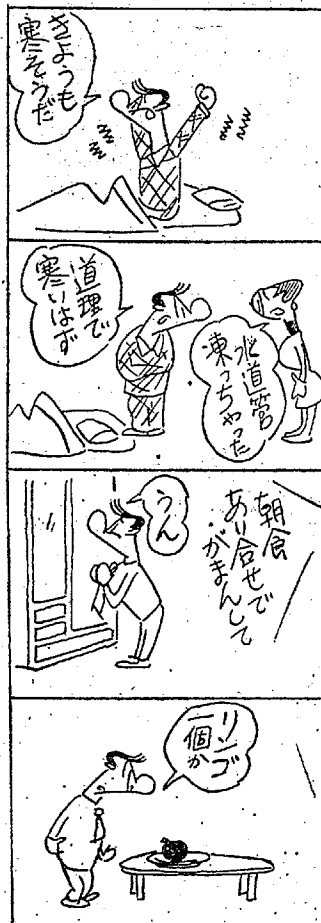 きょうも
寒そうだ
水道管
凍っちゃった
道理で
寒いはず
朝食
あり合せで
がまんして
うん
リンゴ
一個か